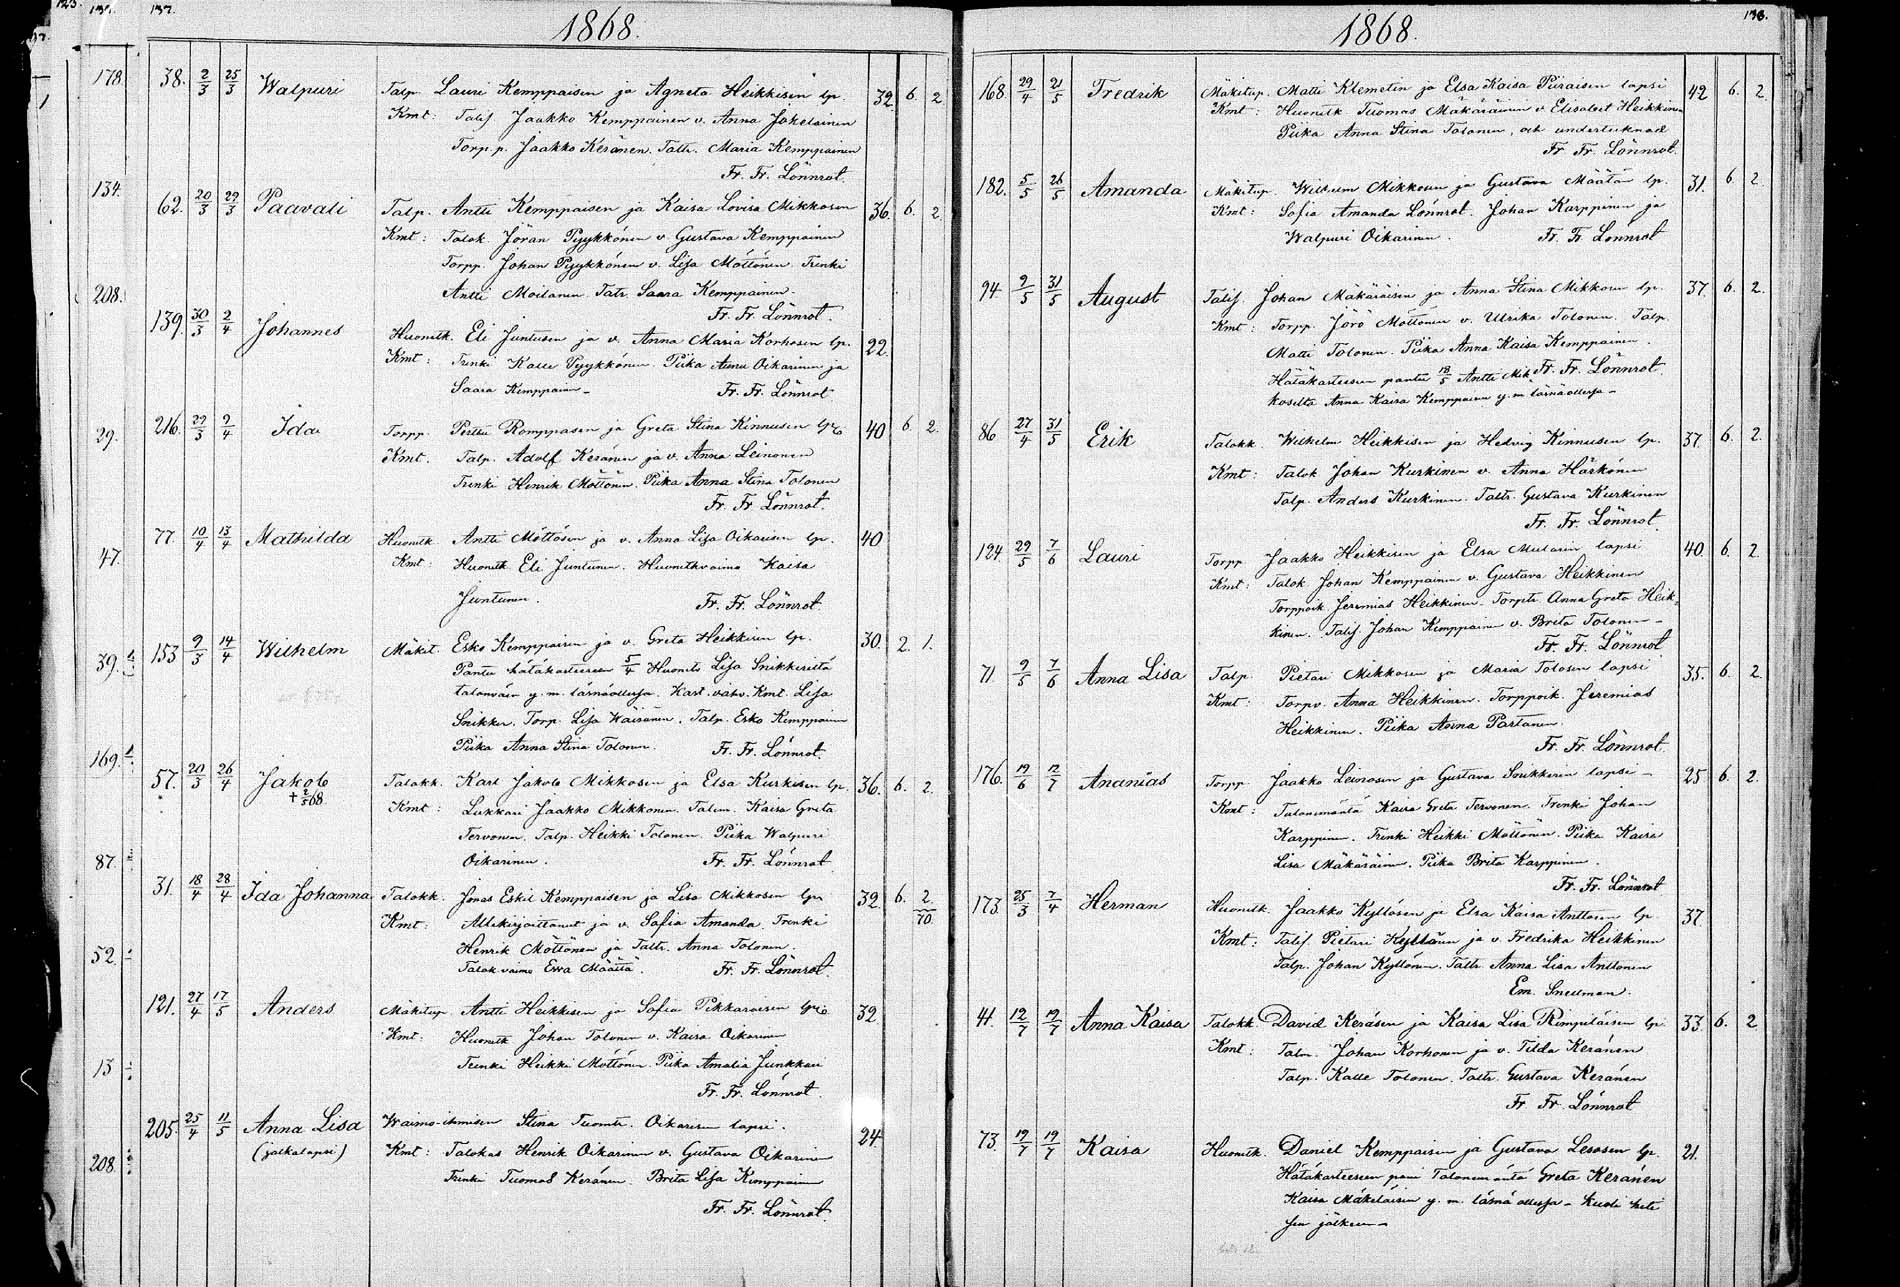 137.
1868.
38. 2/3 25/3 Walpuri Talp. Lauri Kemppaisen ja Agneta Heikkisen lp. 32. 6. 2
Kmt: Talij Jaakko Kemppainen v. Anna Jokelainen
Torp.p. Jaakko Keränen. Taltr. Maria Kemppainen
Fr. Fr. Lönnrot.
62. 20/3 29/3 Paavali Talp. Antti Kemppaisen ja Kaisa Lovisa Mikkosen 36. 6. 2
Kmt: Talok. Jöran Pyykkönen v. Gustava Kemppainen
Torpp. Johan Pyykkönen v. Lisa Möttönen. Trenki
Antti Moilanen. Taltr. Saara Kemppainen.
Fr. Fr. Lönnrot.
139. 30/3 2/4 Johannes Huonelk. Eli Juntusen ja v. Anna Maria Korhosen lp. 22.
Kmt: Trenki Kalle Pyykkönen. Piika Anna Oikarinen ja
Saara Kemppain– Fr. Fr. Lönnrot
216. 29/3 2/4 Ida Torpp. Perttu Romppasen ja Greta Stina Kinnusen 40 6. 2.
Kmt. Talp. Adolf Keränen ja v. Anna Leinonen
Trenki Henrik Möttönen. Piika Anna Stina Tolonen
Fr. Fr. Lönnrot.
77. 10/4 13/4 Mathilda Huonelk Antti Möttösen ja v. Anna Lisa Oikarisen lp. 40
Kmt: Huonelk Eli Juntunen. Huonelkvaimo Kaisa
Juntunen. Fr. Fr. Lönnrot.
153 9/3 14/4 Wilhelm Mäkit. Esko Kemppaisen ja v. Greta Heikkisen lp. 30. 2. 1.
Pantu hätäkasteeseen 5/4 Lisa Snikkerilta
y. m. läsnäollessa. Kmt. Lisa
Snikker. Torp. Lisa Väisänen. Talp. Esko Kemppainen
Piika Anna Stina Tolonen. Fr. Fr. Lönnrot.
57. 20/3 26/4 Jakob Talokk. Karl Jakob Mikkosen ja Elsa Kurkisen lp. 36. 6. 2.
+ 2/5 68 Kmt: Lukkari Jaakko Mikkonen. Talem. Kaisa Greta
Tervonen. Talp. Heikki Tolonen. Piika Walpuri
Oikarinen. Fr. Fr. Lönnrot
31. 18/4 28/4 Ida Johanna Talokk. Jonas Eskil Kemppaisen ja Lisa Mikkosen lps 32 6. 2
Kmt: Allekirjoittanut ja v. Sofia Amanda. Trenki 70.
Henrik Möttönen ja Taltr. Anna Tolonen.
Talok vaimo Määttä. Fr. Fr. Lönnrot.
121. 27/4 17/5 Anders Mäkitup Antti Heikkisen ja Sofia Pikkaraisen 32
Kmt: Huonelk Johan Tolonen v. Kaisa Oikarinen
Trenki Heikki Möttönen. Piika Amalia Junkkari
Fr. Fr. Lönnrot.
205. 25/4 11/5 Anna Lisa Waimo-ihmisen Stina Tuomtr. Oikarisen lapsi. 24.
(jalkalapsi) Kmt: Talokas Henrik Oikarinen v. Gustava Oikarinen
Trenki Tuomas Keränen. Brita Lisa Kemppain
Fr. Fr. Lönnrot.
178.
134.
208.
29.
47.
39.
169.
87.
52.
13
208.
138.
1868.
168. 29/4 21/5 Fredrik Mäkitup. Matti Klemetin ja Elsa Kaisa Piiraisen lapsi 42 6. 2.
Kmt: Huonelk Tuomas Mäkäräinen v. Elisabet Heikkinen
Piika Anna Stina Tolonen, och undertecknad
Fr. Fr. Lönnrot.
182. 5/5 26/5 Amanda Mäkitup. Wilhelm Mikkosen ja Gustava Määtän lp. 31. 6 2.
Kmt: Sofia Amanda Lönnrot. Johan Karppinen ja
Walpuri Oikarinen. Fr. Fr. Lönnrot
94. 9/5 31/5 August Talij. Johan Mäkäräisen ja Anna Stina Mikkosen lp. 37. 6. 2.
Kmt: Torpp. Jörö Möttönen v. Ulrika Tolonen. Talp.
Matti Tolonen. Piika Anna Kaisa Kemppainen.
Hätäkasteesen pantu 18/5 Antti Mik Fr. Fr. Lönnrot.
koselta Anna Kaisa Kemppainen y. m. läsnäollessa–
86 27/4 31/5 Erik Talokk. Wilhelm Heikkisen ja Hedvig Kinnusen lp. 37. 6 2.
Kmt: Talok Johan Kurkinen v. Anna Härkönen
Talp. Anders Kurkinen. Taltr. Gustava Kurkinen
Fr. Fr. Lönnrot.
124. 29/5 7/6 Lauri Torpp Jaakko Heikkisen ja Elsa lapsi 40. 6. 2.
Kmt: Talok Johan Kemppainen v. Gustava Heikkinen
Torppoik. Jeremias Heikkinen. Torptr Anna Greta Heik-
kinen. Talij. Johan Kemppainen v. Brita Tolonen–
Fr. Fr. Lönnrot
71. 9/5 7/6 Anna Lisa Talp Pietari Mikkosen ja Maria Tolosen lapsi 35. 6. 2
Kmt: Torpv. Anna Heikkinen. Torppoik. Jeremias
Heikkinen. Piika Anna Partanen.
Fr. Fr. Lönnrot.
176. 19/6 12/7 Ananias Torpp Jaakko Leinosen ja Gustava Snikkerin lapsi– 25 6 2.
Kmt: Talonemäntä Kaisa Greta Tervonen. Trenki Johan
Karppinen. Trenki Heikki Möttönen. Piika Kaisa
Lisa Mäkäräinen. Piika Brita Karppinen.
Fr. Fr. Lönnrot
173. 25/3 7/4 Herman Huonelk. Jaakko Kyllösen ja Elsa Kaisa Anttosen lp 37.
Kmt: Talij. Pietari Kyllönen ja v. Fredrika Heikkinen
Talp. Johan Kyllönen. Taltr Anna Lisa Anttonen
Em. Snellman.
41. 12/7 19/7 Anna Kaisa Talokk. David Keräsen ja Kaisa Lisa Rimpiläisen lp. 33. 6. 2
Kmt: Talon. Johan Korhonen ja v. Tilda Keränen
Talp. Kalle Tolonen. Taltr. Gustava Keränen
Fr. Fr. Lönnrot
73. 19/7 19/7 Kaisa Huonelk. Daniel Kemppaisen ja Gustava Lesosen lp. 21.
Hätäkasteesen pani Talonemäntä Greta Keränen
Kaisa Mäkeläisen y. m. läsnä ollessa– kuoli heti
sen jälkeen–